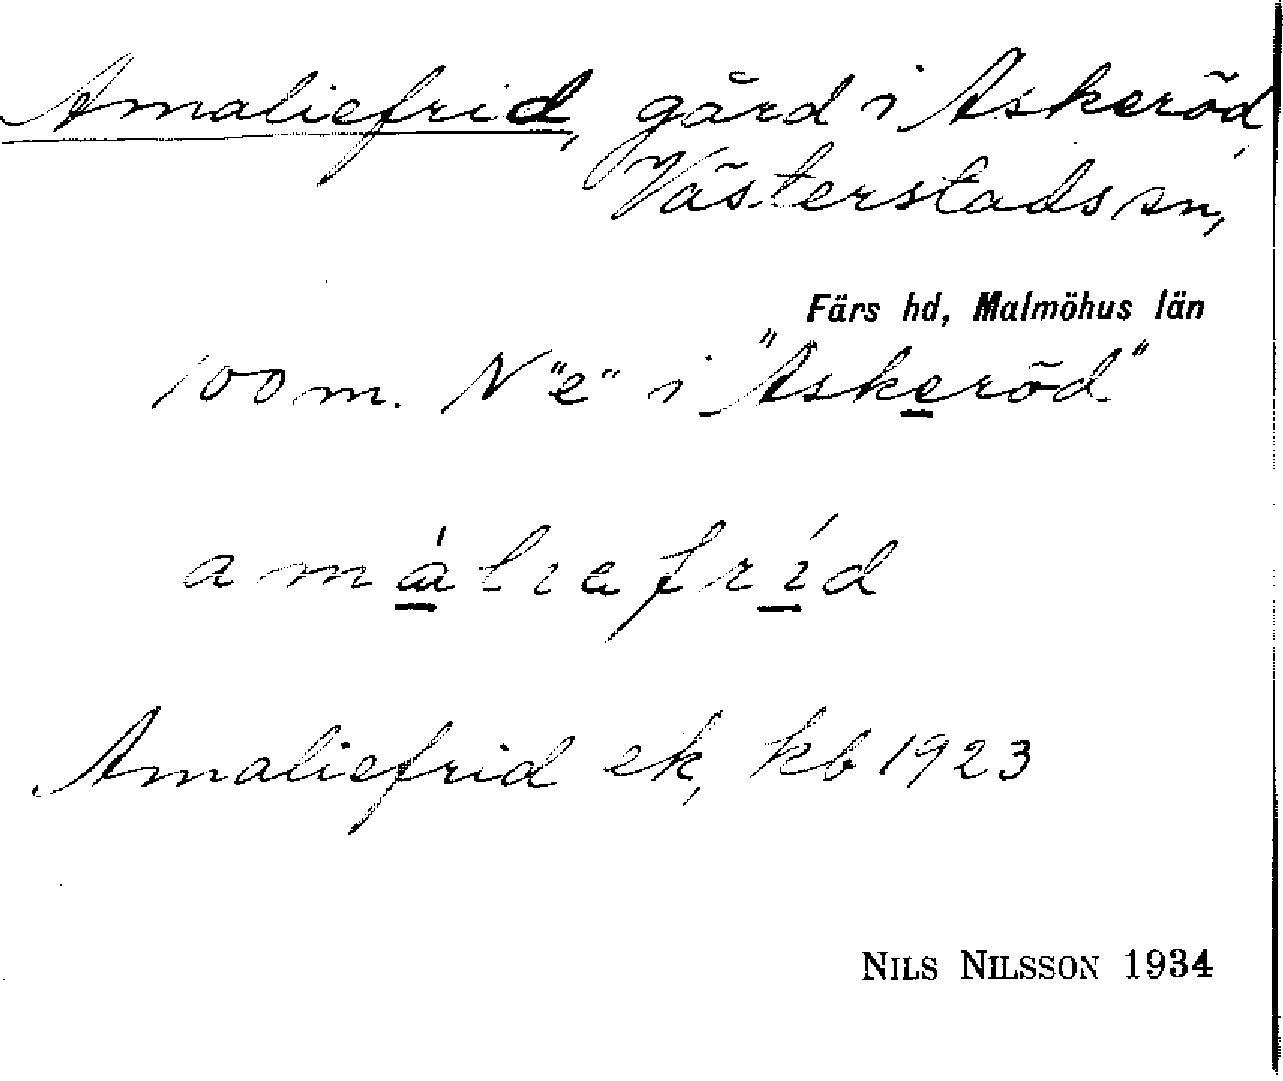 Amaliefrid, gård i Askeröd,
Västerstads sn,
Färs hd, Malmöhus län
100 m. N "e" i "Askeröd"
amáliefríd
Amaliefrid ek, kb 1923
NILS NILSSON 1934